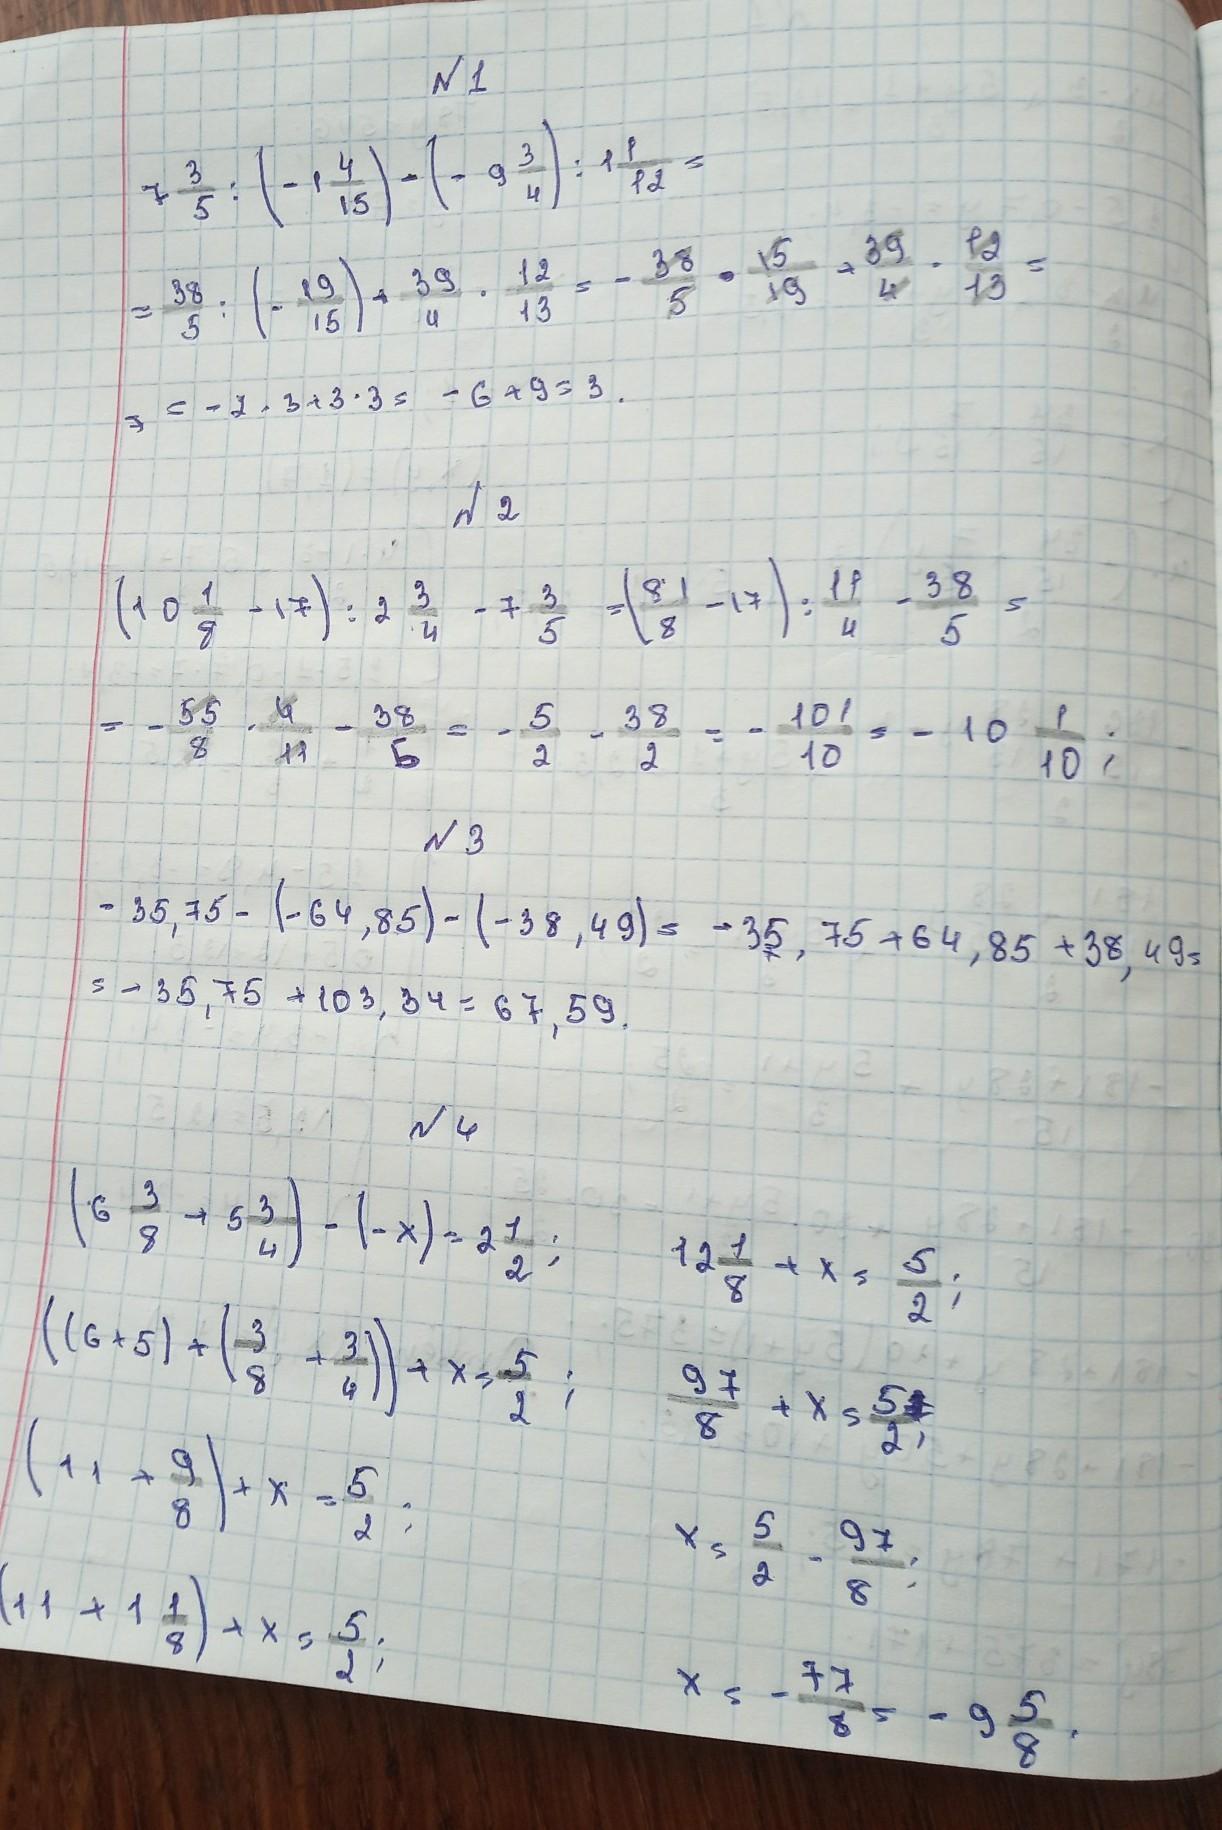 N1
7 3/5 : (-1 4/15) - (- 9 3/4) : 1 1/12 =
= 38/5 : (- 19/15) + 39/4 · 12/13 = - 38/5 · 15/19 + 39/4 · 12/13 =
= - 2 · 3 + 3 · 3 = - 6 + 9 = 3.
N2
(10 1/8 - 17) : 2 3/4 - 7 3/5 = (81/8 - 17) : 11/4 - 38/5 =
= - 55/8 · 4/11 - 38/5 = - 5/2 - 38/2 = - 101/10 = - 10 1/10;
N3
- 35,75 - (-64,85) - (-38,49) = - 35,75 + 64,85 + 38,49 =
= - 35,75 + 103,34 = 67,59.
N4
(6 3/8 + 5 3/4) - (-x) = 2 1/2;
((6+5) + (3/8 + 3/4)) + x = 5/2;
(11 + 9/8) + x = 5/2;
(11 + 1 1/8) + x = 5/2;
12 1/8 + x = 5/2;
97/8 + x = 5/2;
x = 5/2 - 97/8;
x = - 77/8 = - 9 5/8.